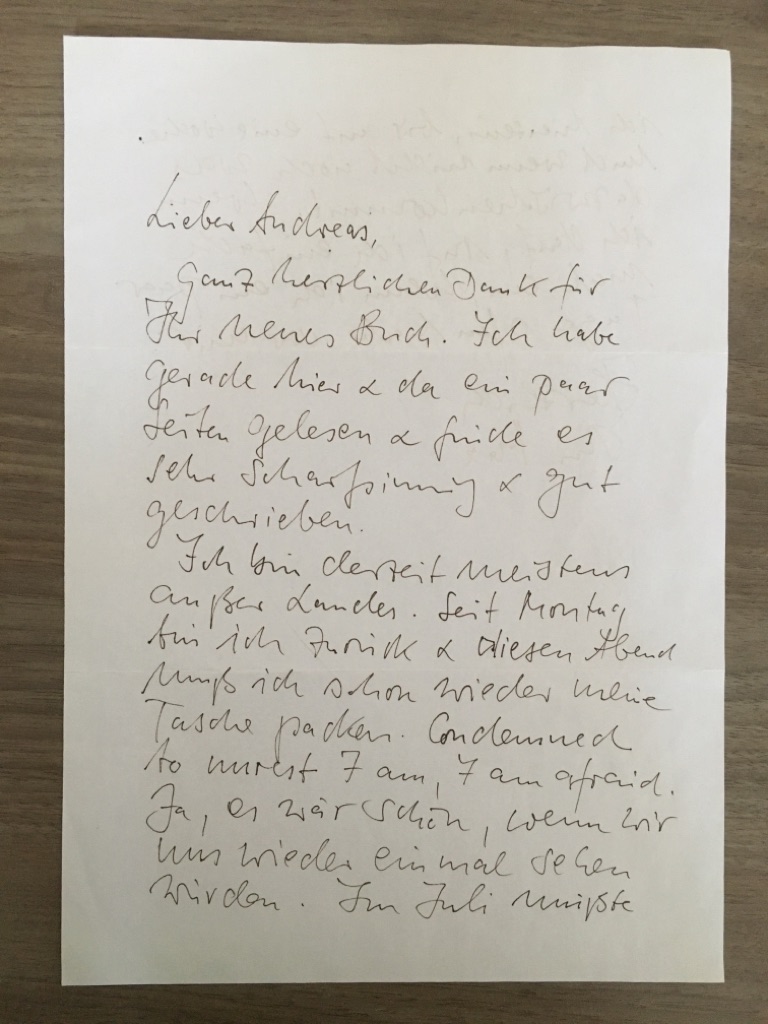 Lieber Andreas,
ganz herzlichen Dank für
Ihr neues Buch. Ich habe
gerade hier & da ein paar
Seiten gelesen & finde es
sehr scharfsinnig & gut
geschrieben.
Ich bin derzeit meistens
außer Landes. Seit Montag
bin ich zurück & diesen Abend
muß ich schon wieder meine
Tasche packen. Condemned
to unrest I am, I am afraid.
Ja, es wär schön, wenn wir
uns wieder einmal sehen
würden. Im Juli müßte